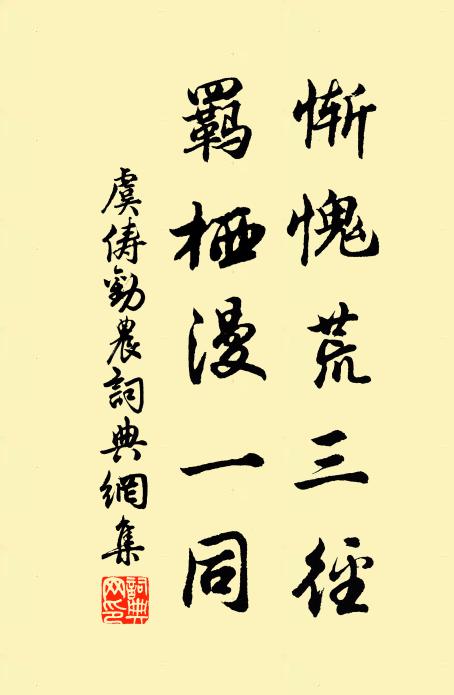 慚愧荒三徑
羇栖漫一同
虞儔勸農詞典網集
詞典网印